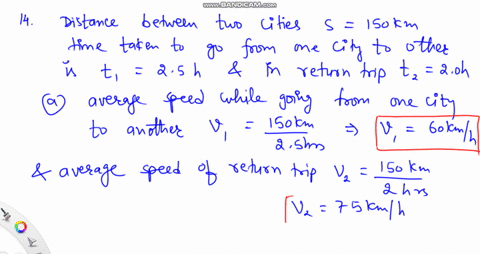 WWW.BANDICAM.COM
14. Distance between two cities S = 150 km
time taken to go from one city to other
is t₁ = 2.5 h & in return trip t₂ = 2.0h
(a) average speed while going from one city
to another V₁ = 150km / 2.5hrs ⇒ V₁ = 60km/h
& average speed of return trip V₂ = 150 km / 2 hrs
V₂ = 75 km/h